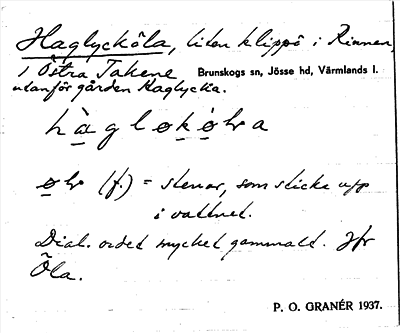 Haglycköla, liten klippö i Rinnen,
i Östra Takene Brunskogs sn, Jösse hd, Värmlands l.
utanför gården Haglycka.
øln (f.) = stenar, som sticka upp
i vattnet.
Dial. ordet mycket gammalt. Jfr
Öla.
P. O. GRANÉR 1937.